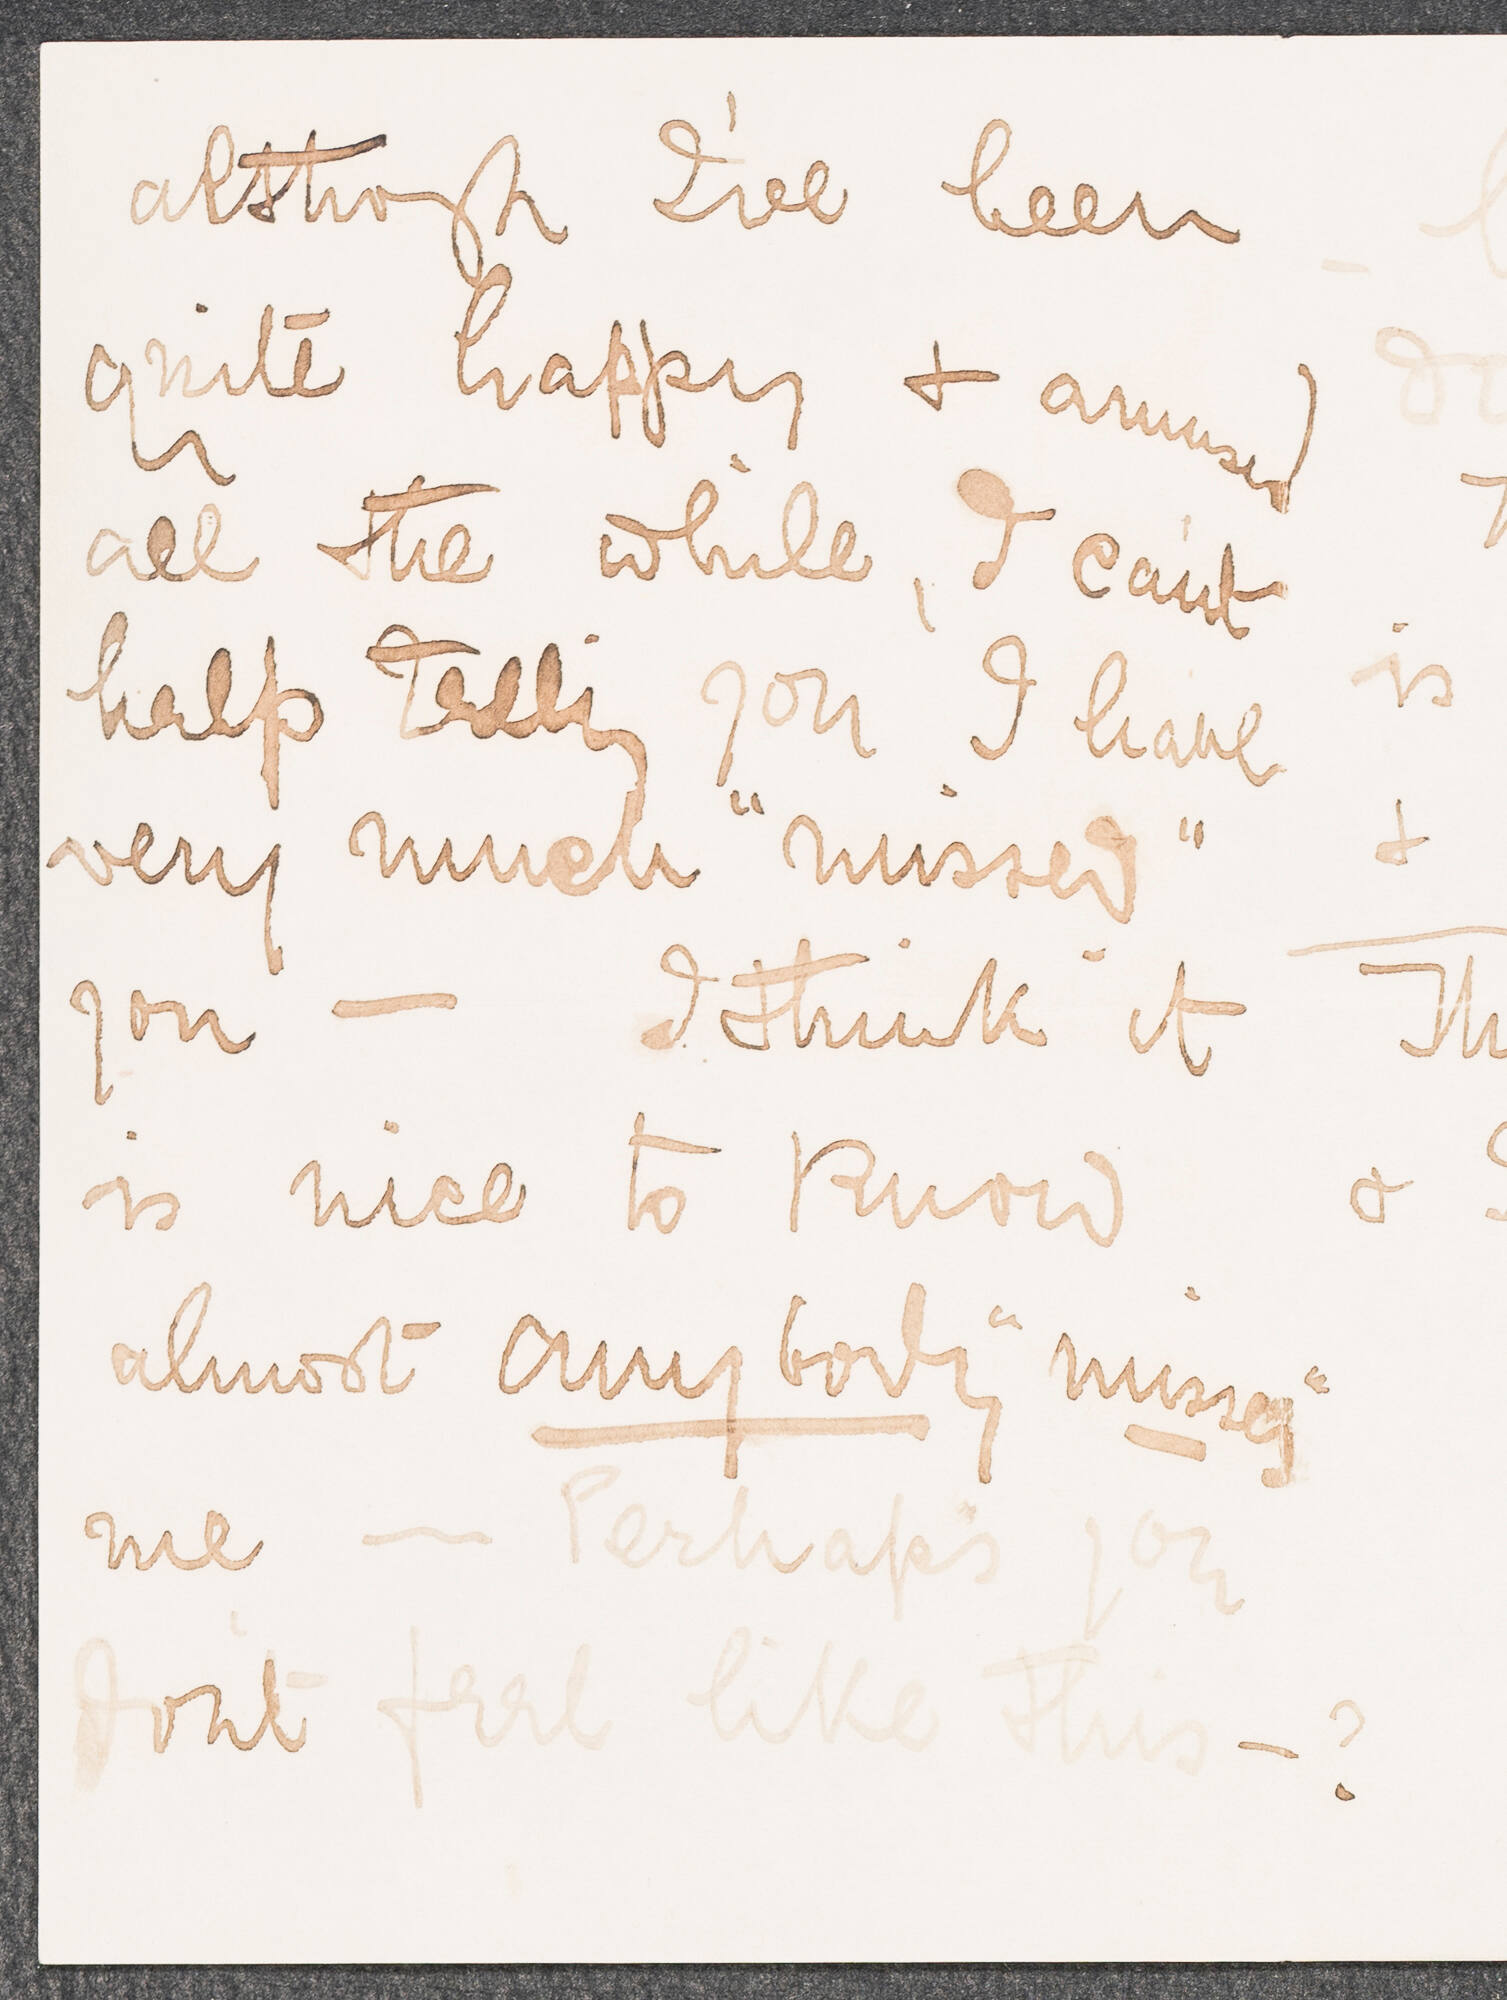 although I've been
quite happy & amused
all the while, I can't
help telling you I have
very much "missed"
you — I think it
is nice to know
almost anybody "misses"
me — Perhaps you
don't feel like this — ?
is
&
&